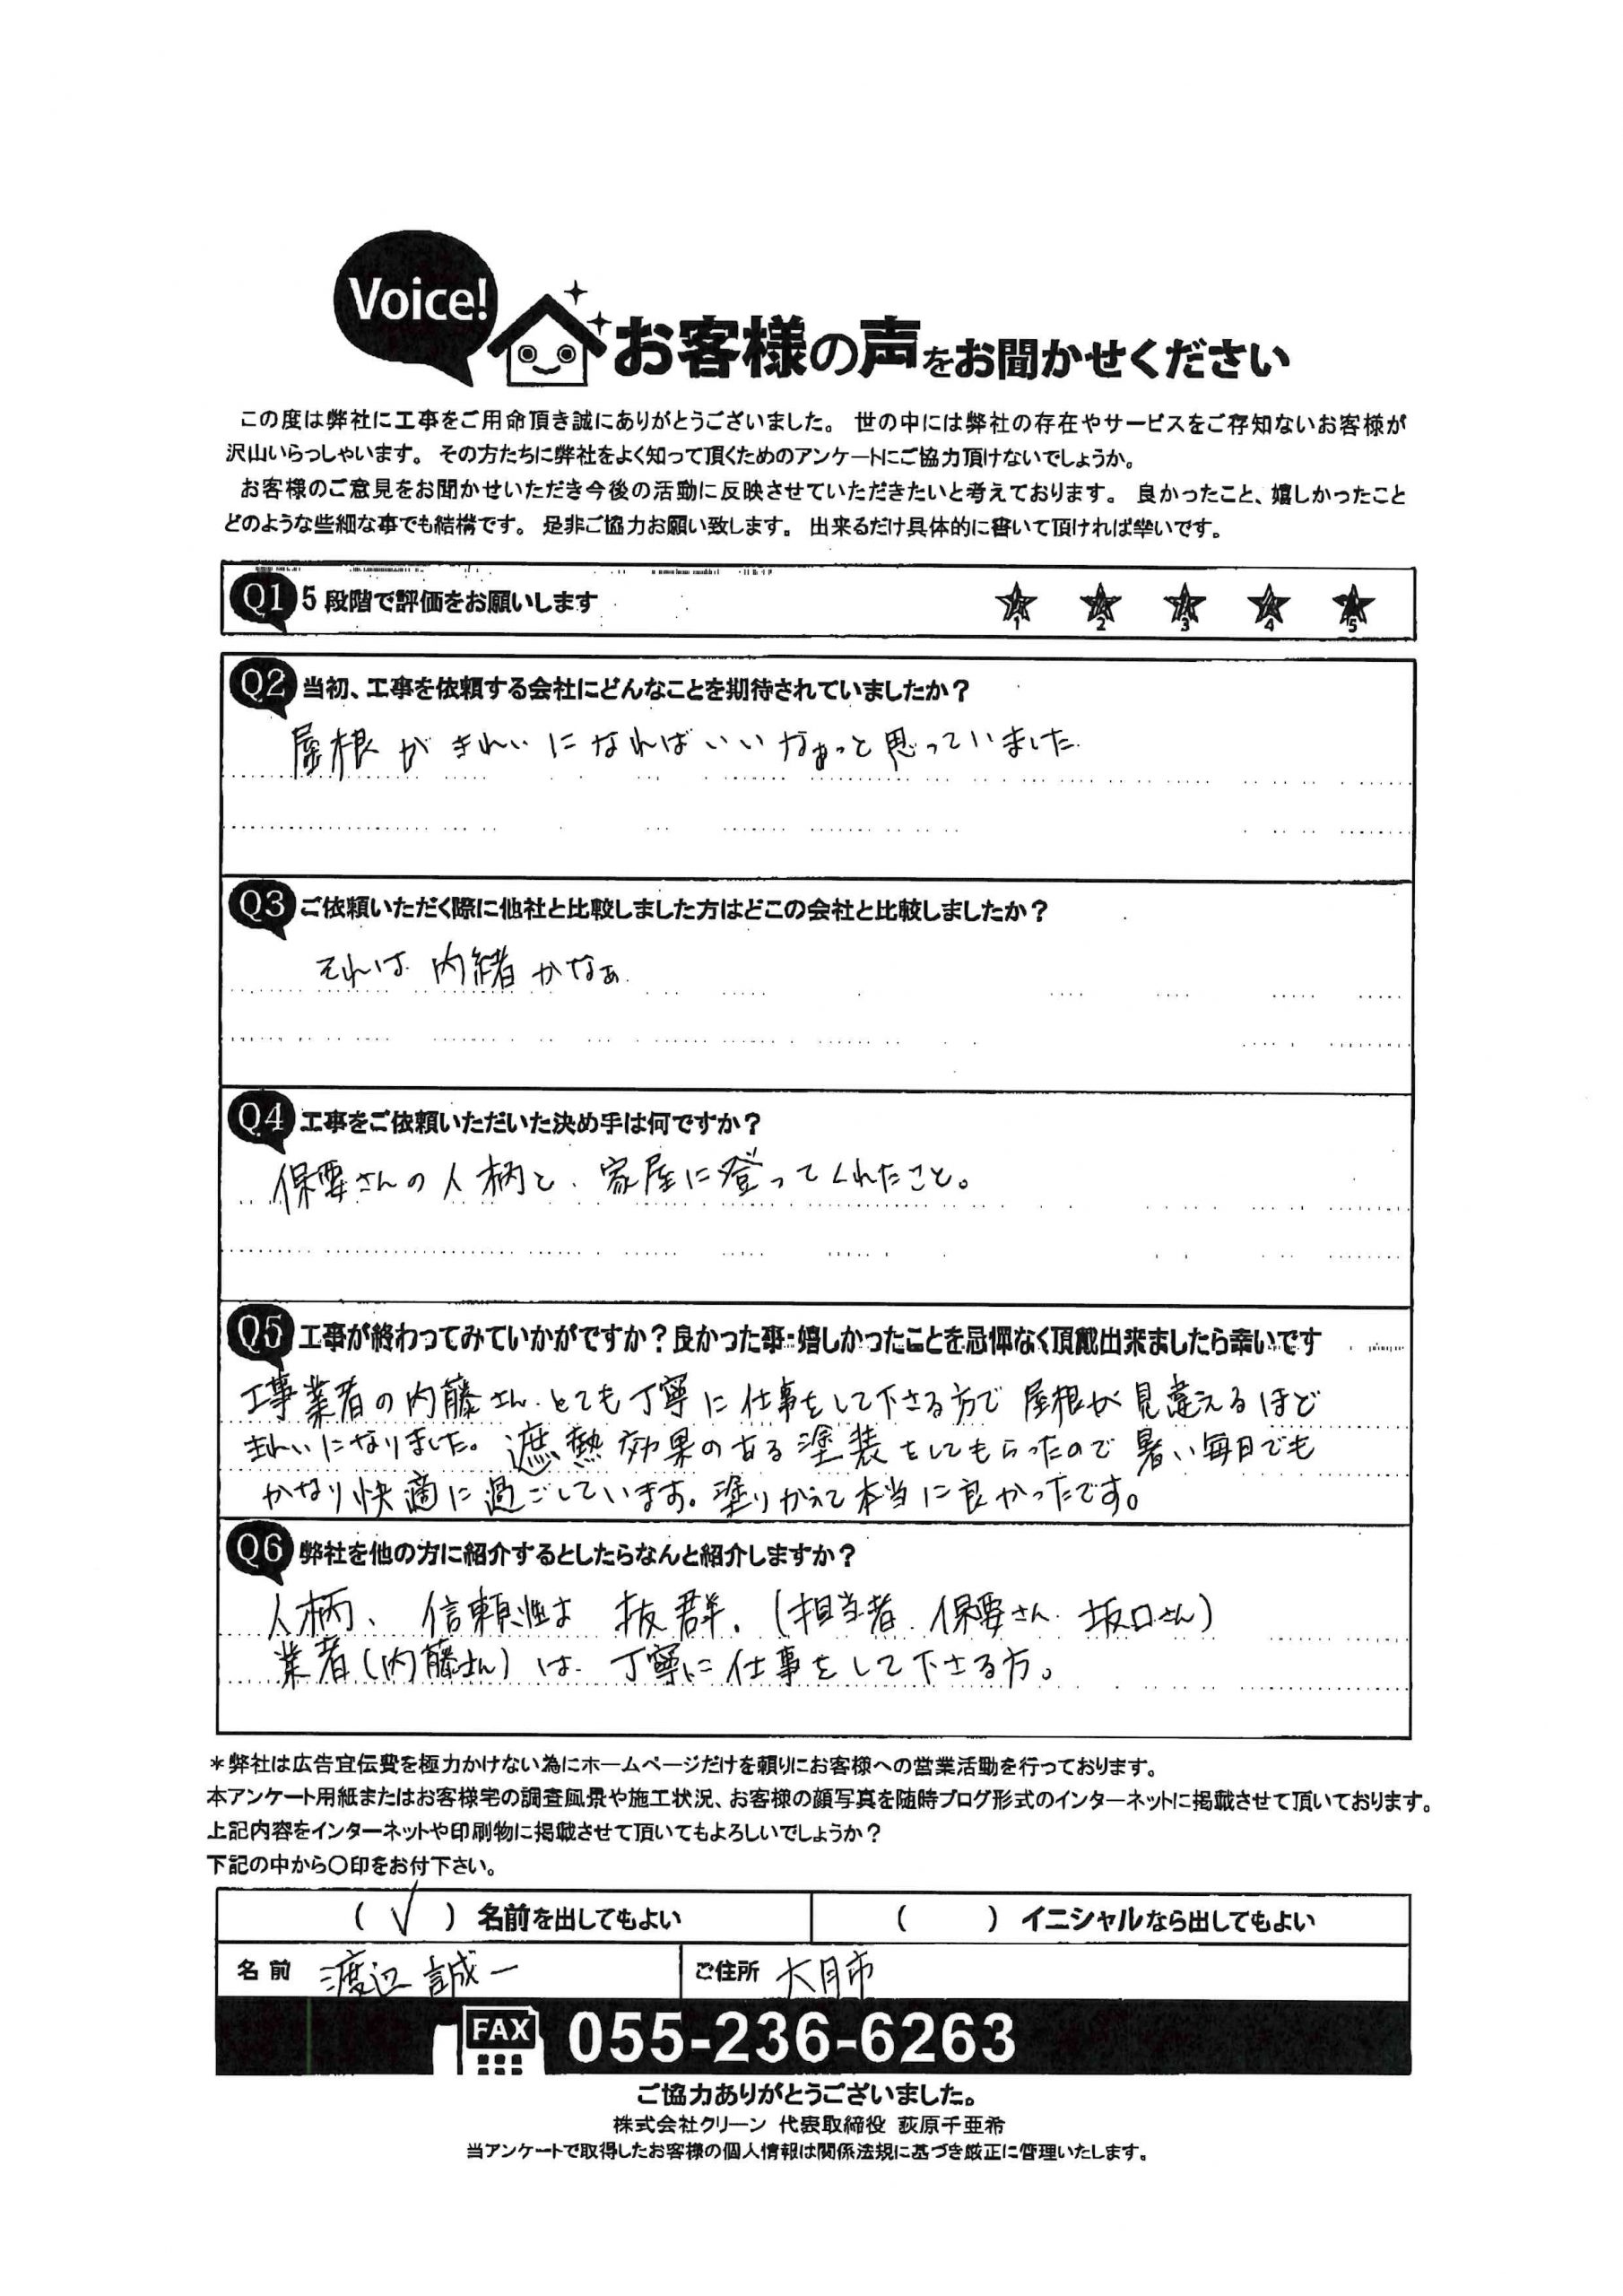 Voice!
お客様の声をお聞かせください
この度は弊社に工事をご用命頂き誠にありがとうございました。 世の中には弊社の存在やサービスをご存知ないお客様が
沢山いらっしゃいます。 その方たちに弊社をよく知って頂くためのアンケートにご協力頂けないでしょうか。
お客様のご意見をお聞かせいただき今後の活動に反映させていただきたいと考えております。 良かったこと、嬉しかったこと
どのような些細な事でも結構です。 是非ご協力お願い致します。 出来るだけ具体的に書いて頂ければ幸いです。
Q1 5段階で評価をお願いします ★1 ★2 ★3 ★4 ★5
Q2 当初、工事を依頼する会社にどんなことを期待されていましたか?
屋根がきれいになればいいなぁっと思っていました.
Q3 ご依頼いただく際に他社と比較しました方はどこの会社と比較しましたか?
それは内緒かなぁ.
Q4 工事をご依頼いただいた決め手は何ですか?
保要さんの人柄と、家屋に登ってくれたこと。
Q5 工事が終わってみていかがですか?良かった事・嬉しかったことを忌憚なく頂戴出来ましたら幸いです
工事業者の内藤さん、とても丁寧に仕事をして下さる方で 屋根が見違えるほど
きれいになりました。遮熱効果のある塗装をしてもらったので暑い毎日でも
かなり快適に過ごしています。塗りかえて本当に良かったです。
Q6 弊社を他の方に紹介するとしたらなんと紹介しますか?
人柄、信頼性は 抜群. (担当者 保要さん. 坂口さん)
業者(内藤さん)は、丁寧に仕事をして下さる方。
*弊社は広告宣伝費を極力かけない為にホームページだけを頼りにお客様への営業活動を行っております。
本アンケート用紙またはお客様宅の調査風景や施工状況、お客様の顔写真を随時ブログ形式のインターネットに掲載させて頂いております。
上記内容をインターネットや印刷物に掲載させて頂いてもよろしいでしょうか?
下記の中から〇印をお付下さい。
(✓) 名前を出してもよい ( ) イニシャルなら出してもよい
名前 渡辺誠一 ご住所 大月市
FAX 055-236-6263
ご協力ありがとうございました。
株式会社クリーン 代表取締役 荻原千亜希
当アンケートで取得したお客様の個人情報は関係法規に基づき厳正に管理いたします。